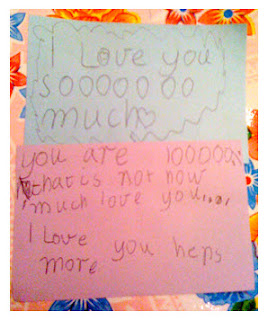 I Love you
soooooo
much♡
you are 100000%
thats not how
much love you....,
I Love you heps
more